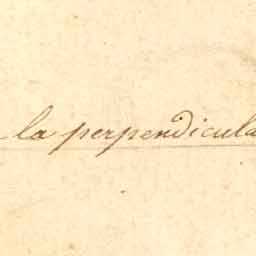 la perpendicula